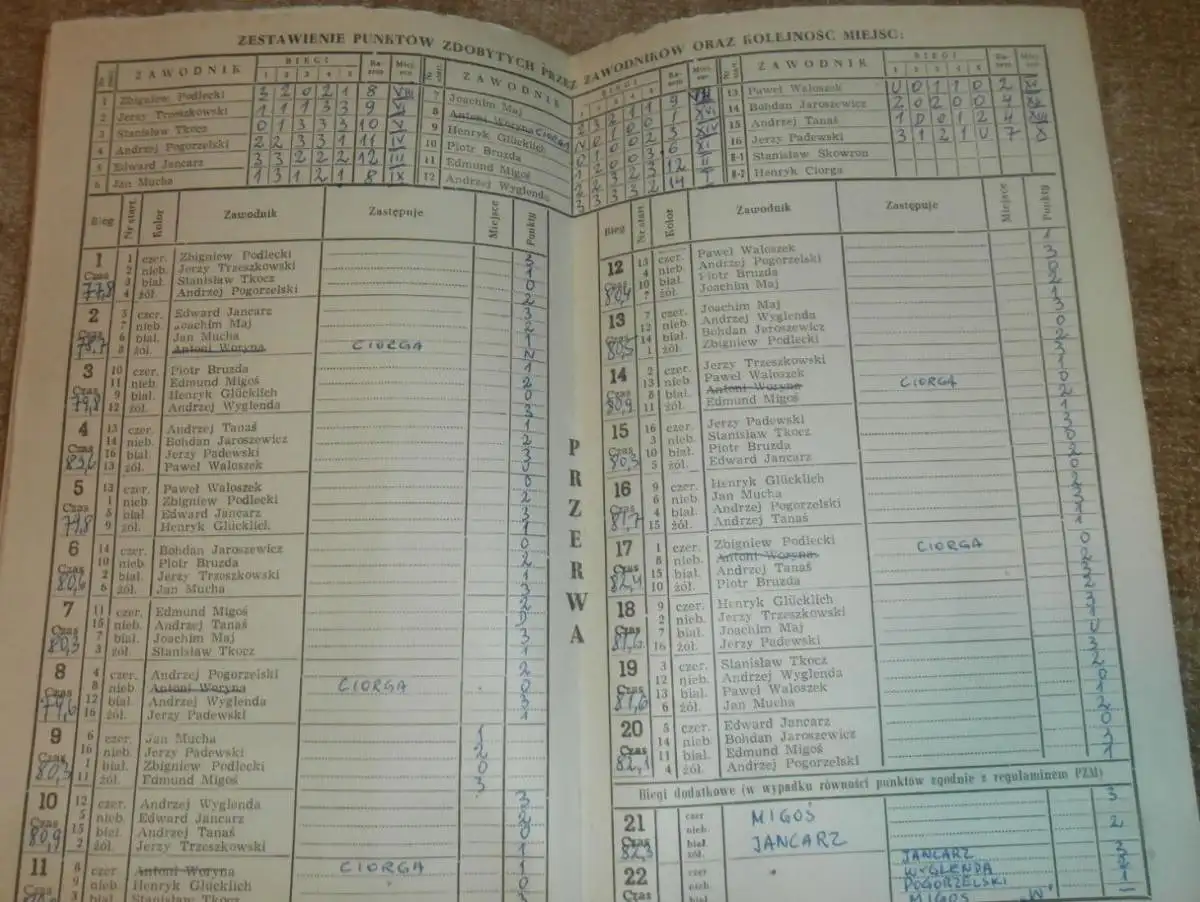 ZESTAWIENIE PUNKTÓW ZDOBYTYCH PRZEZ ZAWODNIKÓW ORAZ KOLEJNOŚĆ MIEJSC:
ZAWODNIK BIEGI 1 2 3 4 5
1 Zbigniew Podlecki 3 2 0 2 1 8 VIII
2 Jerzy Trzeszkowski 1 1 1 3 3 9 VI
3 Stanisław Tkocz 0 1 3 3 3 10 V
4 Andrzej Pogorzelski 2 2 3 3 1 11 IV
5 Edward Jancarz 3 3 2 2 2 12 III
6 Jan Mucha 1 3 1 2 1 8 IX
ZAWODNIK BIEGI
7 Joachim Maj
8 Antoni Woryna CIORGA
9 Henryk Glücklich
10 Piotr Bruzda
11 Edmund Migoś 12 II
12 Andrzej Wyglenda 14 I
ZAWODNIK BIEGI
13 Paweł Waloszek U 0 1 1 0 2
14 Bohdan Jaroszewicz 2 0 2 0 0 4
15 Andrzej Tanaś 1 D 0 1 2 4
16 Jerzy Padewski 3 1 2 1 U 7 X
8-1 Stanisław Skowron
8-2 Henryk Ciorga
Bieg Nr start. Kolor Zawodnik Zastępuje Miejsce Punkty
1 1 czer. Zbigniew Podlecki 3
Czas 2 nieb. Jerzy Trzeszkowski 1
77,8 3 biał. Stanisław Tkocz 0
4 żół. Andrzej Pogorzelski 2
2 5 czer. Edward Jancarz 3
7 nieb. Joachim Maj 2
Czas 6 biał. Jan Mucha 1
8 żół. Antoni Woryna CIORGA N
3 10 czer. Piotr Bruzda 1
11 nieb. Edmund Migoś 2
Czas 9 biał. Henryk Glücklich 0
79,8 12 żół. Andrzej Wyglenda 3
4 czer. Andrzej Tanaś 1
14 nieb. Bohdan Jaroszewicz 2
Czas 16 biał. Jerzy Padewski 3
13 żół. Paweł Waloszek U
5 13 czer. Paweł Waloszek 0
1 nieb. Zbigniew Podlecki 2
Czas 5 biał. Edward Jancarz 3
79,8 9 żół. Henryk Glücklich 1
6 14 czer. Bohdan Jaroszewicz 0
10 nieb. Piotr Bruzda 2
Czas 2 biał. Jerzy Trzoszkowski 1
80,6 6 żół. Jan Mucha 3
7 11 czer. Edmund Migoś 2
15 nieb. Andrzej Tanaś D
Czas 7 biał. Joachim Maj 3
80,3 3 żół. Stanisław Tkocz 1
8 4 czer. Andrzej Pogorzelski 2
8 nieb. Antoni Woryna CIORGA 0
Czas 12 biał. Andrzej Wyglenda 3
79,6 16 żół. Jerzy Padewski 1
9 6 czer. Jan Mucha 1
16 nieb. Jerzy Padewski 2
Czas 1 biał. Zbigniew Podlecki 0
80,3 11 żół. Edmund Migoś 3
10 12 czer. Andrzej Wyglenda 3
5 nieb. Edward Jancarz 2
Czas 15 biał. Andrzej Tanaś 0
80,9 2 żół. Jerzy Trzeszkowski 1
11 8 czer. Antoni Woryna CIORGA 1
Czas 9 nieb. Henryk Glücklich 0
3 biał. Stanisław Tkocz
PRZERWA
Bieg Nr start Kolor Zawodnik Zastępuje Miejsce Punkty
12 13 czer. Paweł Waloszek 1
4 nieb. Andrzej Pogorzelski 3
Czas 10 biał. Piotr Bruzda
80,4 7 żół. Joachim Maj 2
13 7 czer. Joachim Maj 1
12 nieb. Andrzej Wyglenda 3
Czas 14 biał. Bohdan Jaroszewicz 0
80,5 1 żół. Zbigniew Podlecki 2
14 2 czer. Jerzy Trzeszkowski 3
13 nieb. Paweł Waloszek 1
Czas 8 biał. Antoni Woryna CIORGA 0
80,9 11 żół. Edmund Migoś 2
15 16 czer. Jerzy Padewski 1
3 nieb. Stanisław Tkocz 3
Czas 10 biał. Piotr Bruzda 0
80,3 5 żół. Edward Jancarz 2
16 9 czer. Henryk Glücklich 0
6 nieb. Jan Mucha 2
Czas 4 biał. Andrzej Pogorzelski 3
81,7 15 żół. Andrzej Tanaś 1
17 1 czer. Zbigniew Podlecki
8 nieb. Antoni Woryna CIORGA 0
Czas 15 biał. Andrzej Tanaś 2
82,4 10 żół. Piotr Bruzda 3
18 9 czer. Henryk Glücklich 2
2 nieb. Jerzy Trzeszkowski 3
Czas 7 biał. Joachim Maj 1
81,6 16 żół. Jerzy Padewski U
19 3 czer. Stanisław Tkocz 3
12 nieb. Andrzej Wyglenda 2
Czas 13 biał. Paweł Waloszek 0
81,6 6 żół. Jan Mucha 1
20 5 czer. Edward Jancarz 2
14 nieb. Bohdan Jaroszewicz 0
Czas 11 biał. Edmund Migoś 3
82,1 4 żół. Andrzej Pogorzelski 1
Biegi dodatkowe (w wypadku równości punktów zgodnie z regulaminem PZM)
21 czer MIGOŚ 3
nieb.
Czas biał. JANCARZ 2
82,3 żół.
22 czer JANCARZ 3
nieb. WYGLENDA
Czas biał. POGORZELSKI 1
MIGOŚ "W" —